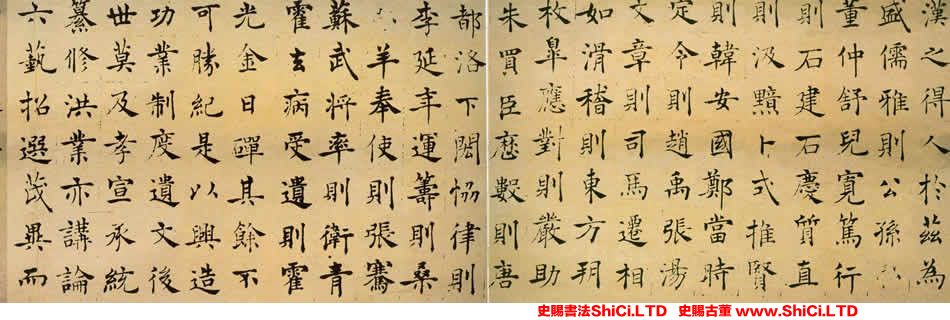 漢之得人於茲為
盛儒雅則公孫
董仲舒兒寬篤行
則石建石慶質直
則汲黯卜式推賢
則韓安國鄭當時
定令則趙禹張湯
文章則司馬遷相
如滑稽則東方朔
枚臯應對則嚴助
朱買臣歷數則唐
都洛下閎協律則
李延年運籌則桑
羊奉使則張騫
蘇武將率則衛青
霍去病受遺則霍
光金日磾其餘不
可勝紀是以興造
功業制度遺文後
世莫及孝宣承統
纂修洪業亦講論
六藝招選茂異而
史賜書法ShiCi.LTD 史賜古董 www.ShiCi.LTD